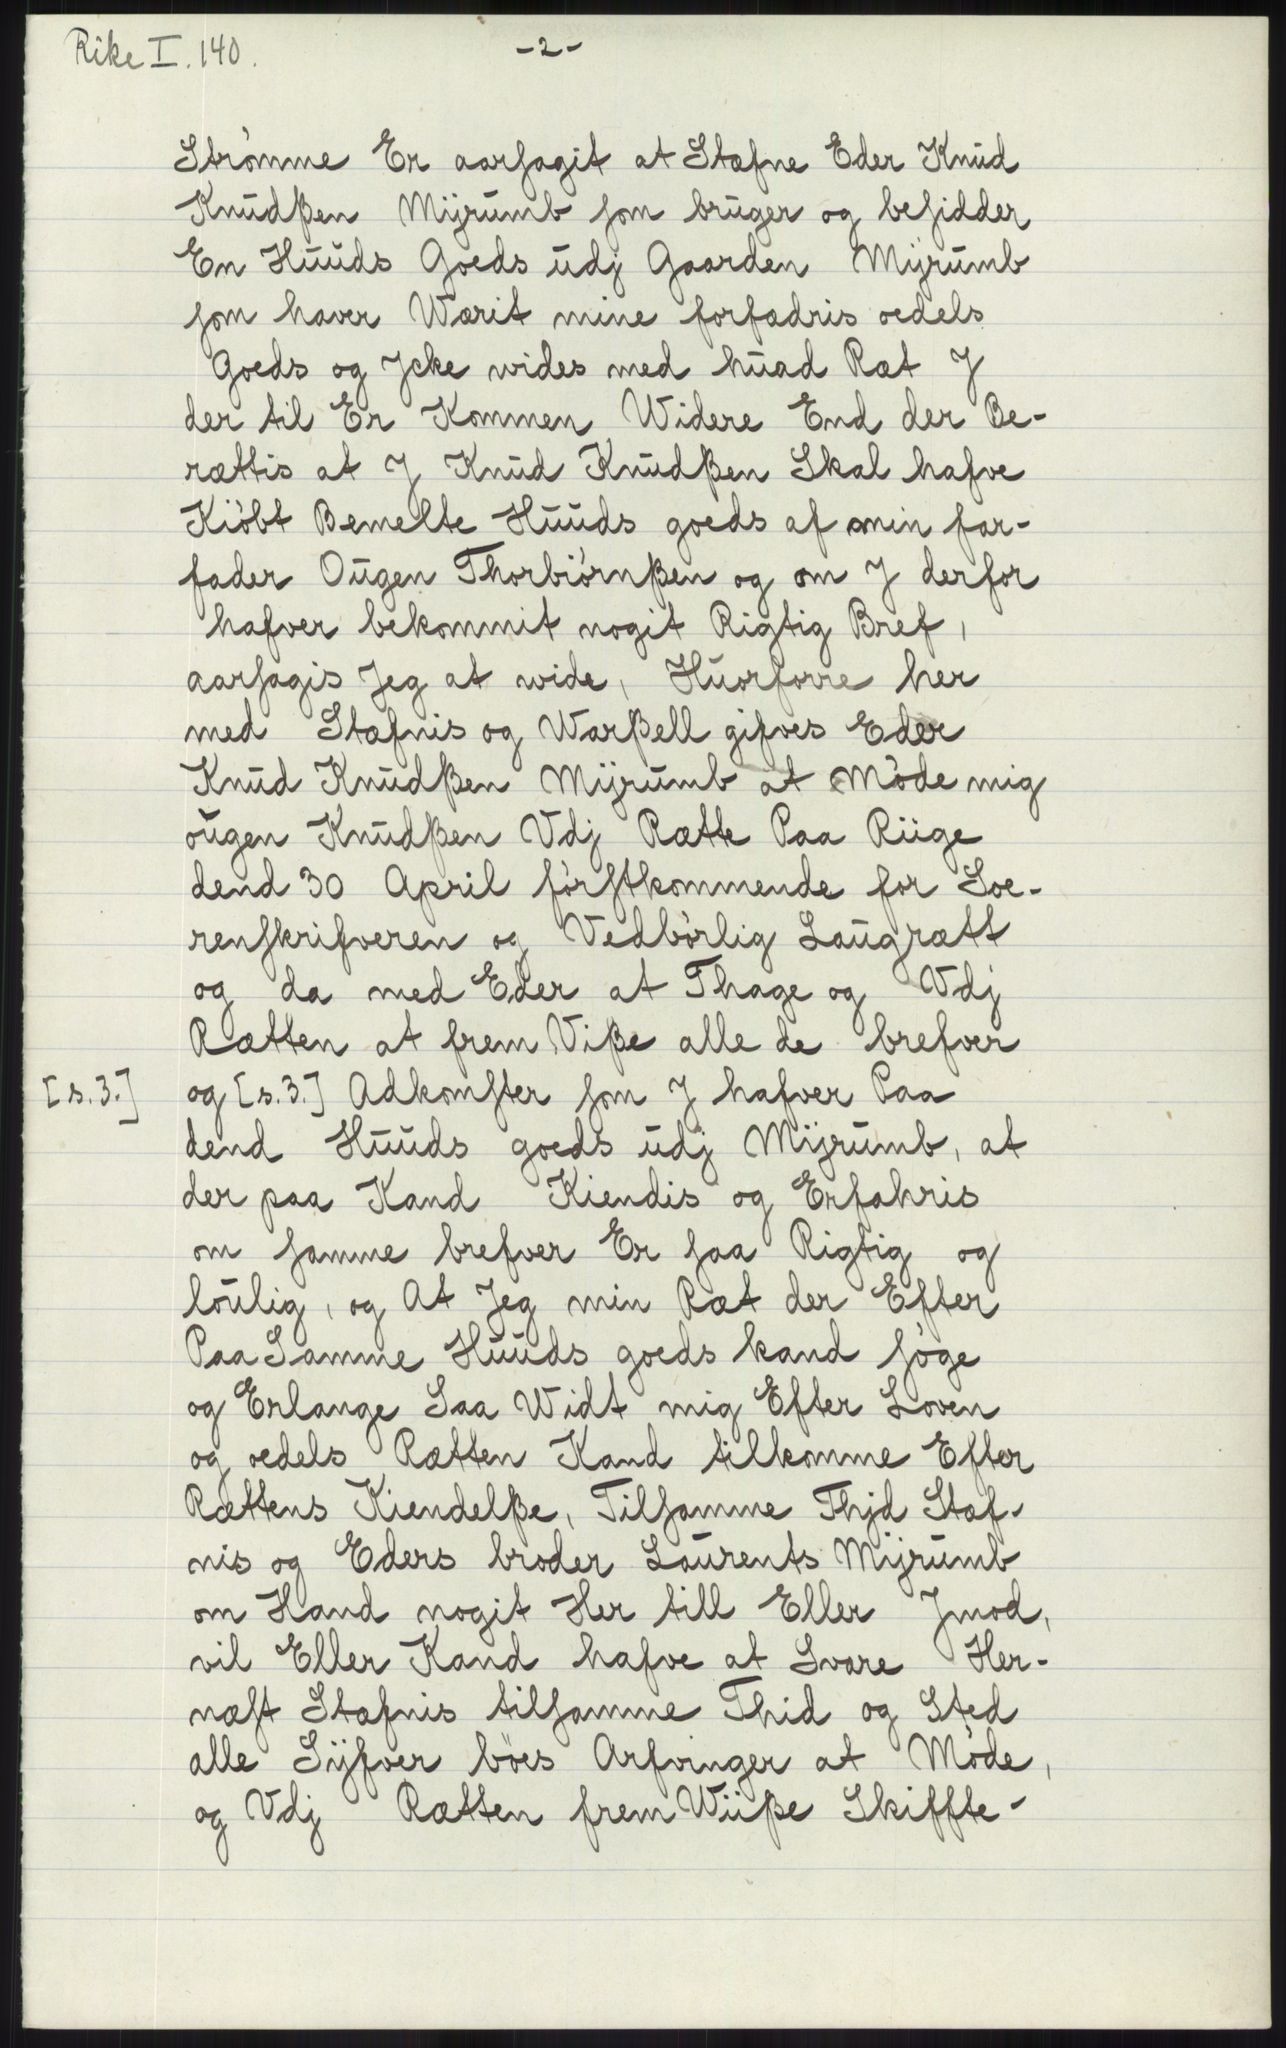 Rike I. 140.
-2-
Strömme Er aarsagit at Stæfne Eder Knud
Knudßen Mÿrumb som bruger og besidder
En Huuds Goeds udj Gaarden Mÿrumb
som haver Wærit mine forfædris oedels
Goeds og Jcke wides med huad Ræt J
der til Er Kommen Widere End der Be-
rættis at J Knud Knudßen Skal hafve
Kiöbt Bemelte Huuds goeds af min far-
fader Ougen Thorbiörnßen og om J derfor
hafver bekommit nogit Rigtig Bref,
aarsagis Jeg at wide, Huorforre her
med Stæfnis og Warßell gifves Eder
Knud Knudßen Mÿrumb at Möde mig
ougen Knudßen Vdj Rætte Paa Riige
dend 30 April förstkommende for Soe-
renskrifveren og Vedbörlig Laugrætt
og da med Eder at Thage og Vdj
Rætten at frem Viße alle de brefver
[s.3.] og [s.3.] Adkomster som J hafver Paa
dend Huuds goeds udj Mÿrumb, at
der paa Kand Kiendis og Erfahris
om samme brefver Er saa Rigtig og
loulig, og At Jeg min Ræt der Efter
Paa Samme Huuds goeds kand söge
og Erlange Saa Widt mig Efter Loven
og oedels Rætten Kand tilkomme Efter
Rættens Kiendelße, Tilsamme Thjd Stæf-
nis og Eders broder Laurents Mÿrumb
om Hand nogit Her till Eller Jmod,
vil Eller Kand hafve at Svare Her-
næst Stæfnis tilsamme Thid og Sted
alle Sÿfver böes Arfvinger at Möde,
og Vdj Rætten frem Wiiße Skiffte-